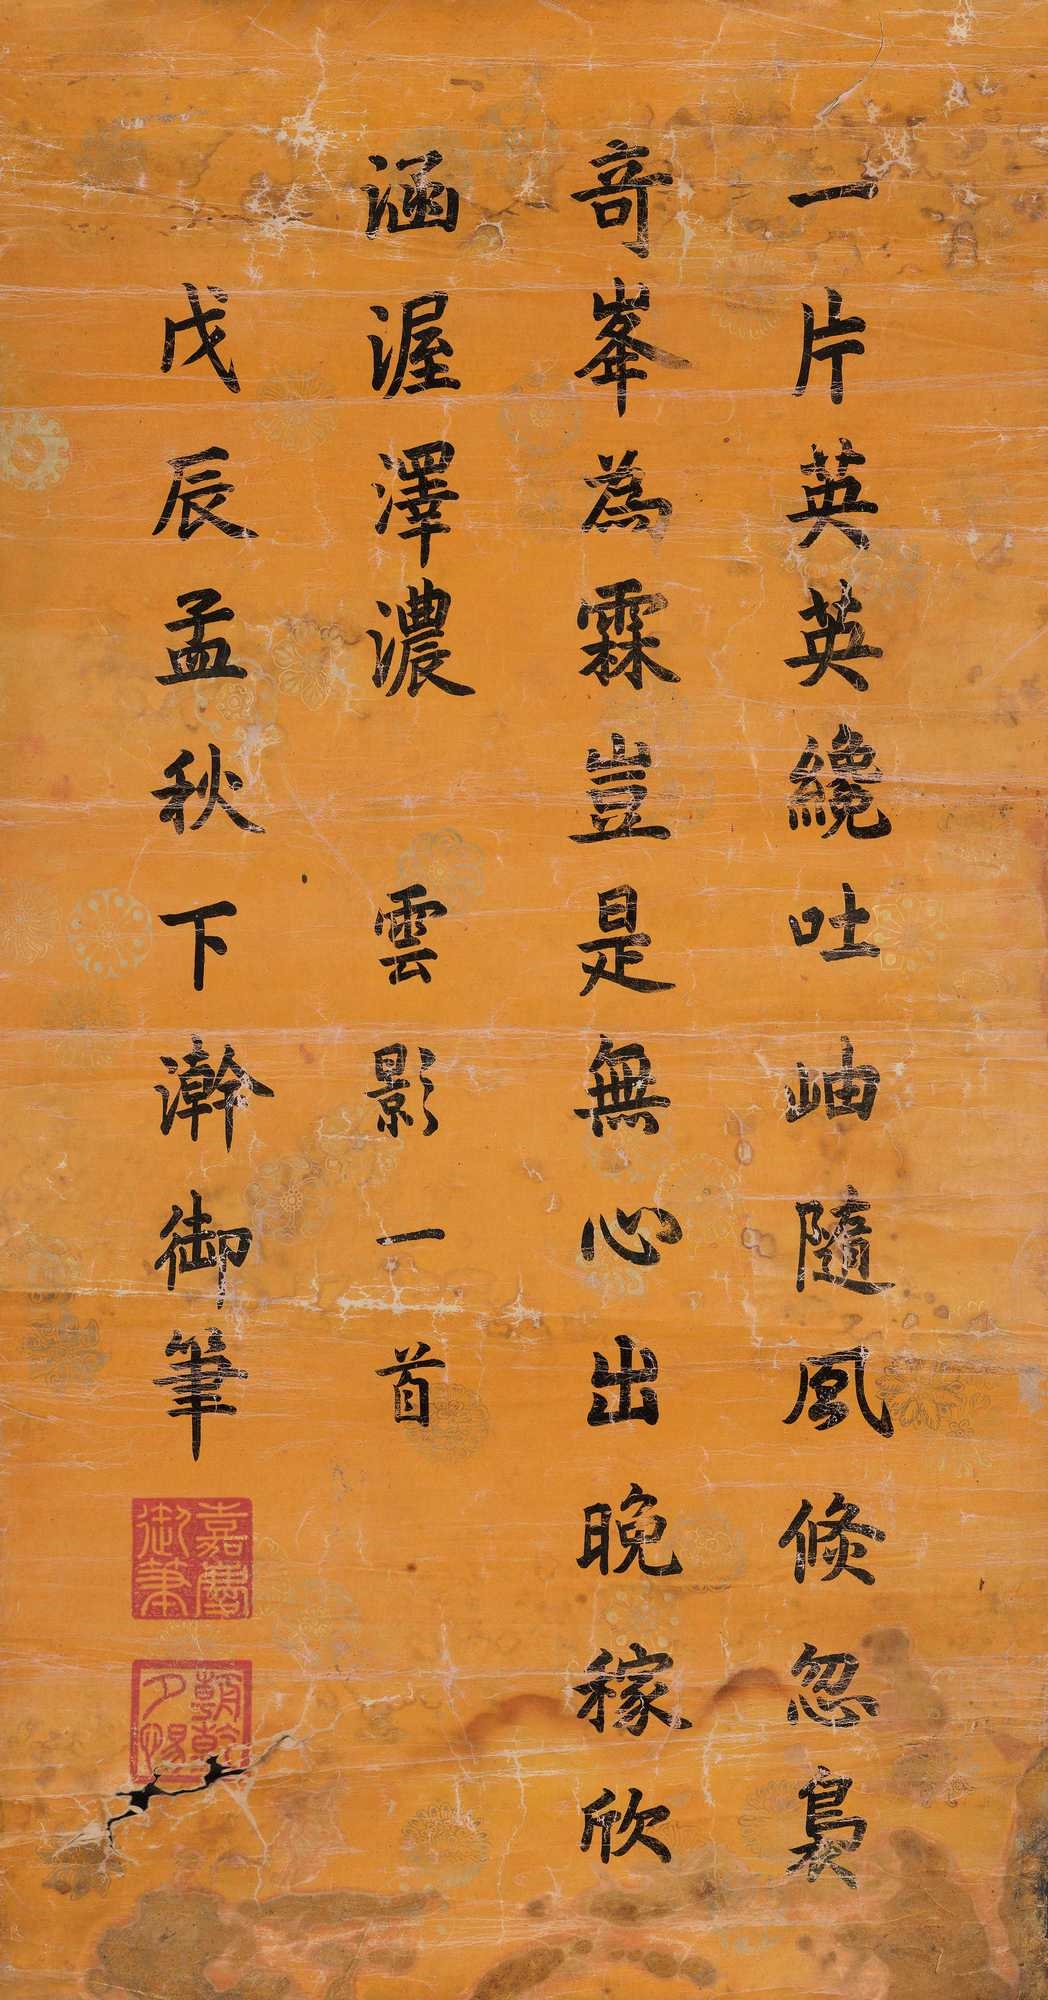 一片英英纔吐岫隨風倏忽裊
竒峯為霖豈是無心出晚稼欣
涵渥澤濃 雲影一首
戊辰孟秋下澣御筆
嘉慶御筆
朝乾夕惕